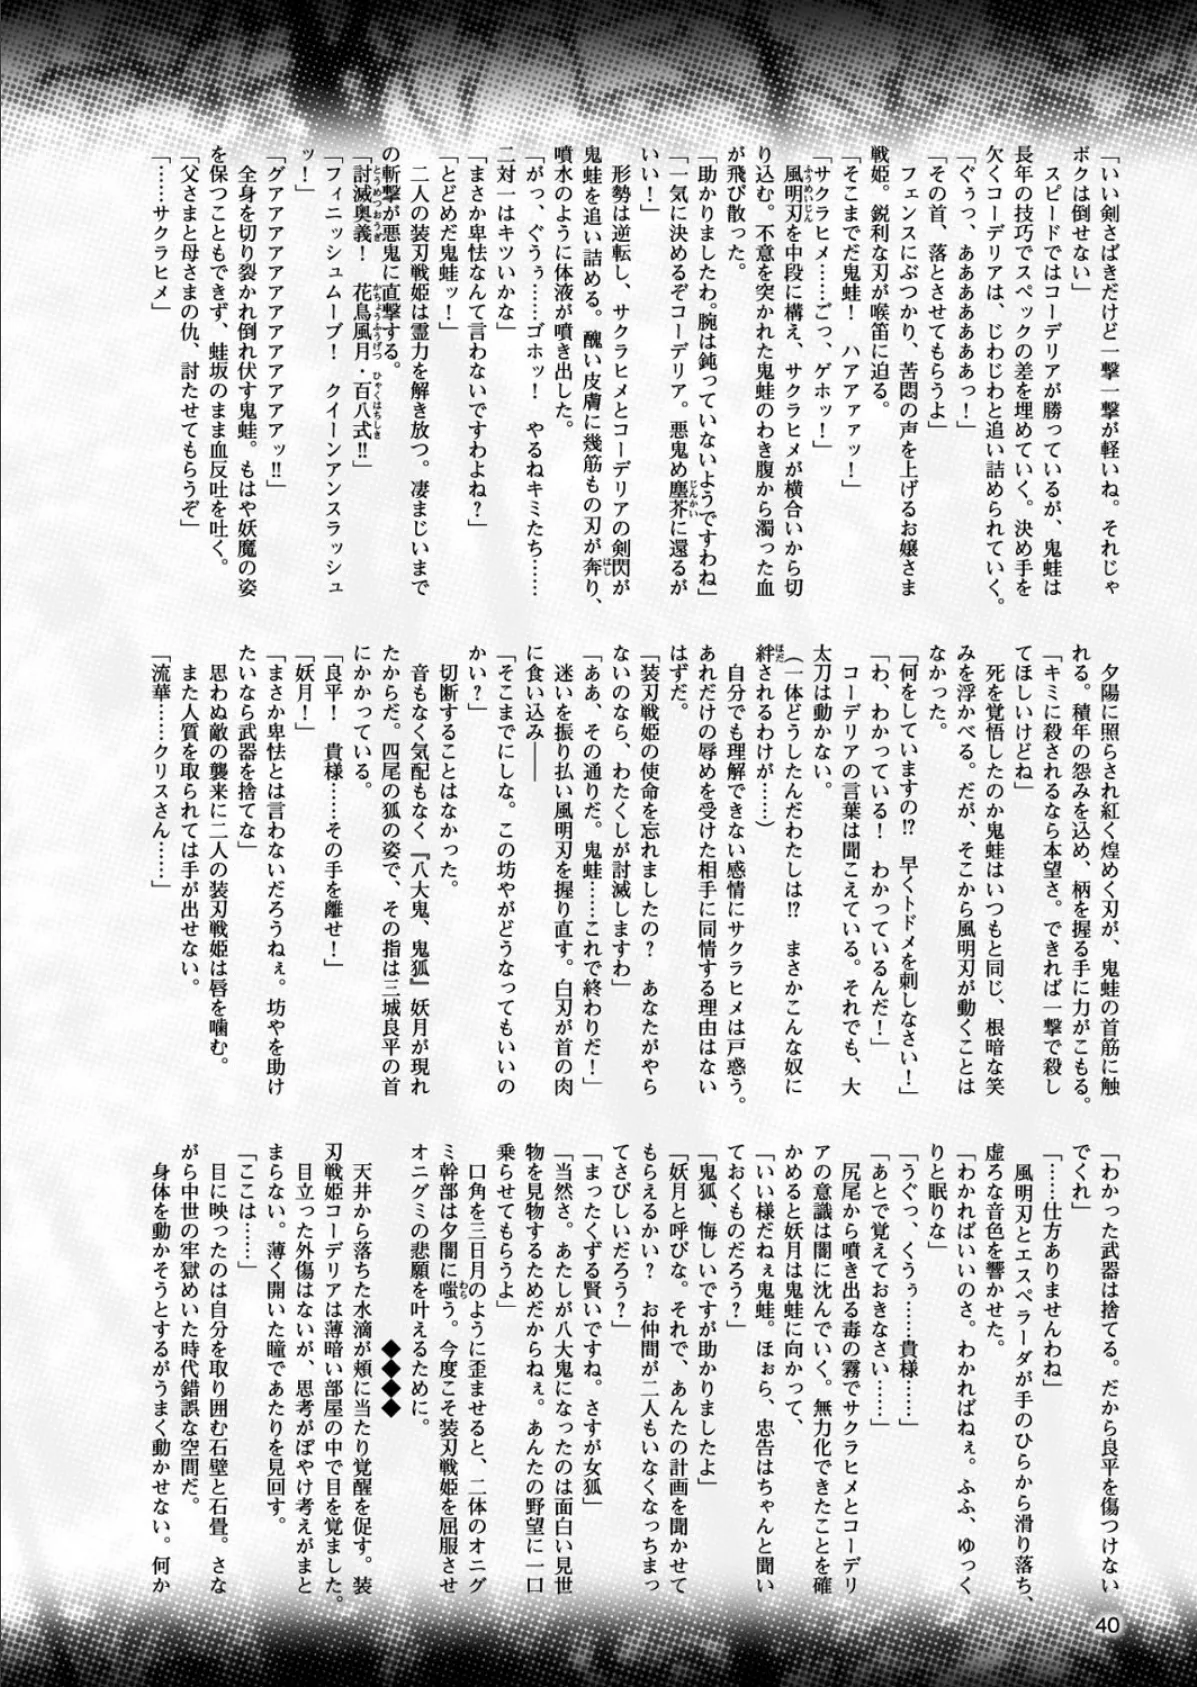 「いい剣さばきだけど一撃一撃が軽いね。それじゃ
ボクは倒せない」
　スピードではコーデリアが勝っているが、鬼蛙は
長年の技巧でスペックの差を埋めていく。決め手を
欠くコーデリアは、じわじわと追い詰められていく。
「ぐぅっ、ああああああぁっ！」
「その首、落とさせてもらうよ」
　フェンスにぶつかり、苦悶の声を上げるお嬢さま
戦姫。鋭利な刃が喉笛に迫る。
「そこまでだ鬼蛙！　ハアアァァッ！」
「サクラヒメ……ごっ、ゲホッ！」
　風明刃を中段に構え、サクラヒメが横合いから切
り込む。不意を突かれた鬼蛙のわき腹から濁った血
が飛び散った。
「助かりましたわ。腕は鈍っていないようですわね」
「一気に決めるぞコーデリア。悪鬼め塵芥に還るが
いい！」
　形勢は逆転し、サクラヒメとコーデリアの剣閃が
鬼蛙を追い詰める。醜い皮膚に幾筋もの刃が奔り、
噴水のように体液が噴き出した。
「がっ、ぐうぅ……ゴホッ！　やるねキミたち……
二対一はキツいかな」
「まさか卑怯なんて言わないですわよね？」
「とどめだ鬼蛙ッ！」
　二人の装刃戦姫は霊力を解き放つ。凄まじいまで
の斬撃が悪鬼に直撃する。
「討滅奥義！　花鳥風月・百八式!!」
「フィニッシュムーブ！　クイーンアンスラッシュ
ッ！」
「グアアアアアアアアアアアアアアッ!!」
　全身を切り裂かれ倒れ伏す鬼蛙。もはや妖魔の姿
を保つこともできず、蛙坂のまま血反吐を吐く。
「父さまと母さまの仇、討たせてもらうぞ」
「……サクラヒメ」
　夕陽に照らされ紅く煌めく刃が、鬼蛙の首筋に触
れる。積年の怨みを込め、柄を握る手に力がこもる。
「キミに殺されるなら本望さ。できれば一撃で殺し
てほしいけどね」
　死を覚悟したのか鬼蛙はいつもと同じ、根暗な笑
みを浮かべる。だが、そこから風明刃が動くことは
なかった。
「何をしていますの!?　早くトドメを刺しなさい！」
「わ、わかっている！　わかっているんだ！」
　コーデリアの言葉は聞こえている。それでも、大
太刀は動かない。
（一体どうしたんだわたしは!?　まさかこんな奴に
絆されるわけが……）
　自分でも理解できない感情にサクラヒメは戸惑う。
あれだけの辱めを受けた相手に同情する理由はない
はずだ。
「装刃戦姫の使命を忘れましたの？　あなたがやら
ないのなら、わたくしが討滅しますわ」
「ああ、その通りだ。鬼蛙……これで終わりだ！」
　迷いを振り払い風明刃を握り直す。白刃が首の肉
に食い込み――
「そこまでにしな。この坊やがどうなってもいいの
かい？」
　切断することはなかった。
　音もなく気配もなく『八大鬼、鬼狐』妖月が現れ
たからだ。四尾の狐の姿で、その指は三城良平の首
にかかっている。
「良平！　貴様……その手を離せ！」
「妖月！」
「まさか卑怯とは言わないだろうねぇ。坊やを助け
たいなら武器を捨てな」
　思わぬ敵の襲来に二人の装刃戦姫は唇を噛む。
　また人質を取られては手が出せない。
「流華……クリスさん……」
「わかった武器は捨てる。だから良平を傷つけない
でくれ」
「……仕方ありませんわね」
　風明刃とエスペラーダが手のひらから滑り落ち、
虚ろな音色を響かせた。
「わかればいいのさ。わかればねぇ。ふふ、ゆっく
りと眠りな」
「うぐっ、くうぅ……貴様……」
「あとで覚えておきなさい……」
　尻尾から噴き出る毒の霧でサクラヒメとコーデリ
アの意識は闇に沈んでいく。無力化できたことを確
かめると妖月は鬼蛙に向かって、
「いい様だねぇ鬼蛙。ほぉら、忠告はちゃんと聞い
ておくものだろう？」
「鬼狐、悔しいですが助かりましたよ」
「妖月と呼びな。それで、あんたの計画を聞かせて
もらえるかい？　お仲間が二人もいなくなっちまっ
てさびしいだろう？」
「まったくずる賢いですね。さすが女狐」
「当然さ。あたしが八大鬼になったのは面白い見世
物を見物するためだからねぇ。あんたの野望に一口
乗らせてもらうよ」
　口角を三日月のように歪ませると、二体のオニグ
ミ幹部は夕闇に嗤う。今度こそ装刃戦姫を屈服させ
オニグミの悲願を叶えるために。
◆◆◆◆
　天井から落ちた水滴が頬に当たり覚醒を促す。装
刃戦姫コーデリアは薄暗い部屋の中で目を覚ました。
　目立った外傷はないが、思考がぼやけ考えがまと
まらない。薄く開いた瞳であたりを見回す。
「ここは……」
　目に映ったのは自分を取り囲む石壁と石畳。さな
がら中世の牢獄めいた時代錯誤な空間だ。
　身体を動かそうとするがうまく動かせない。何か
40